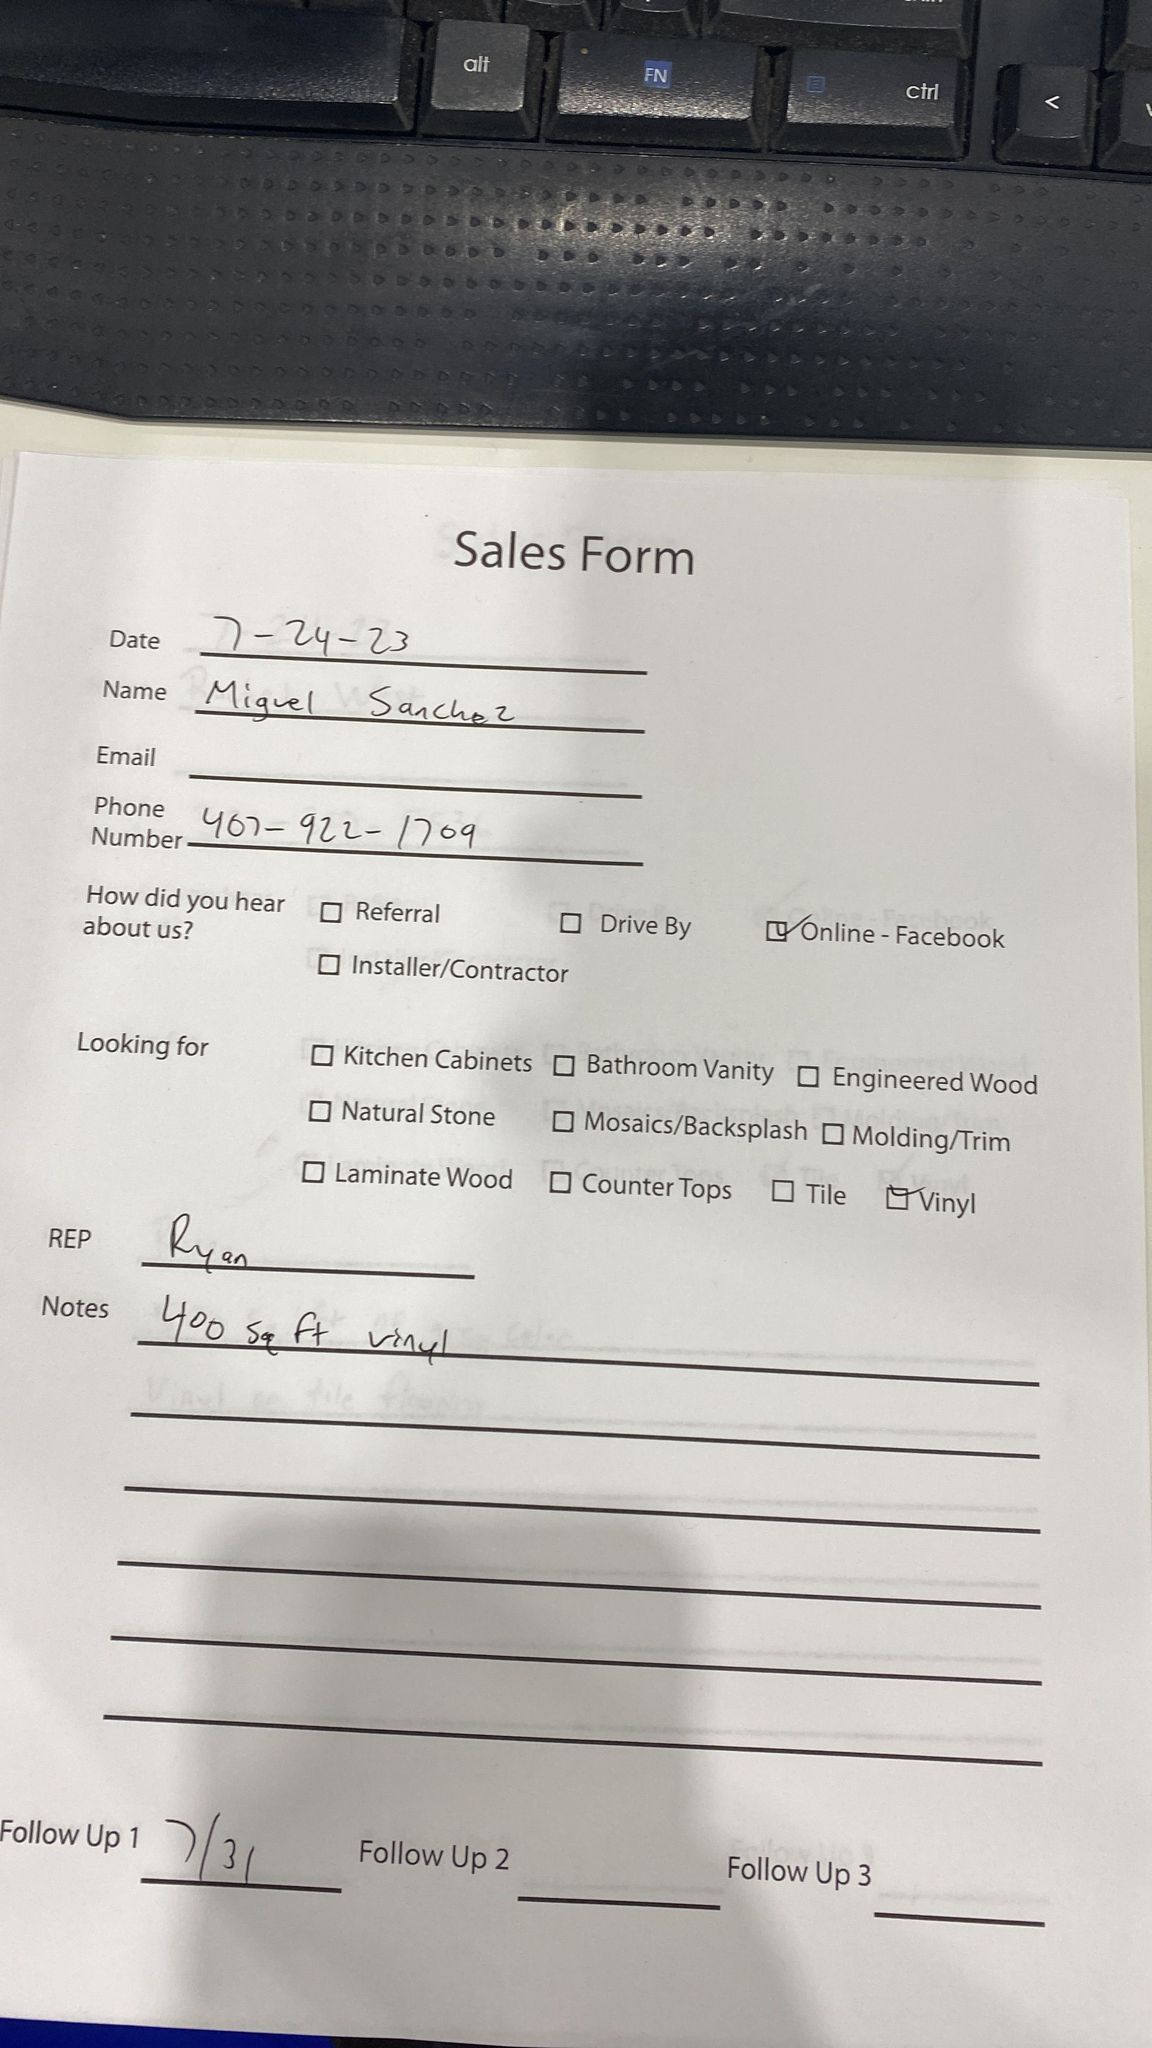 alt FN ctrl <
Sales Form
Date 7-24-23
Name Miguel Sanchez
Email
Phone
Number 407-922-1709
How did you hear
about us?
☐ Referral ☐ Drive By ☑ Online - Facebook
☐ Installer/Contractor
Looking for ☐ Kitchen Cabinets ☐ Bathroom Vanity ☐ Engineered Wood
☐ Natural Stone ☐ Mosaics/Backsplash ☐ Molding/Trim
☐ Laminate Wood ☐ Counter Tops ☐ Tile ☑ Vinyl
REP Ryan
Notes 400 sq ft vinyl
Follow Up 1 7/31 Follow Up 2 Follow Up 3